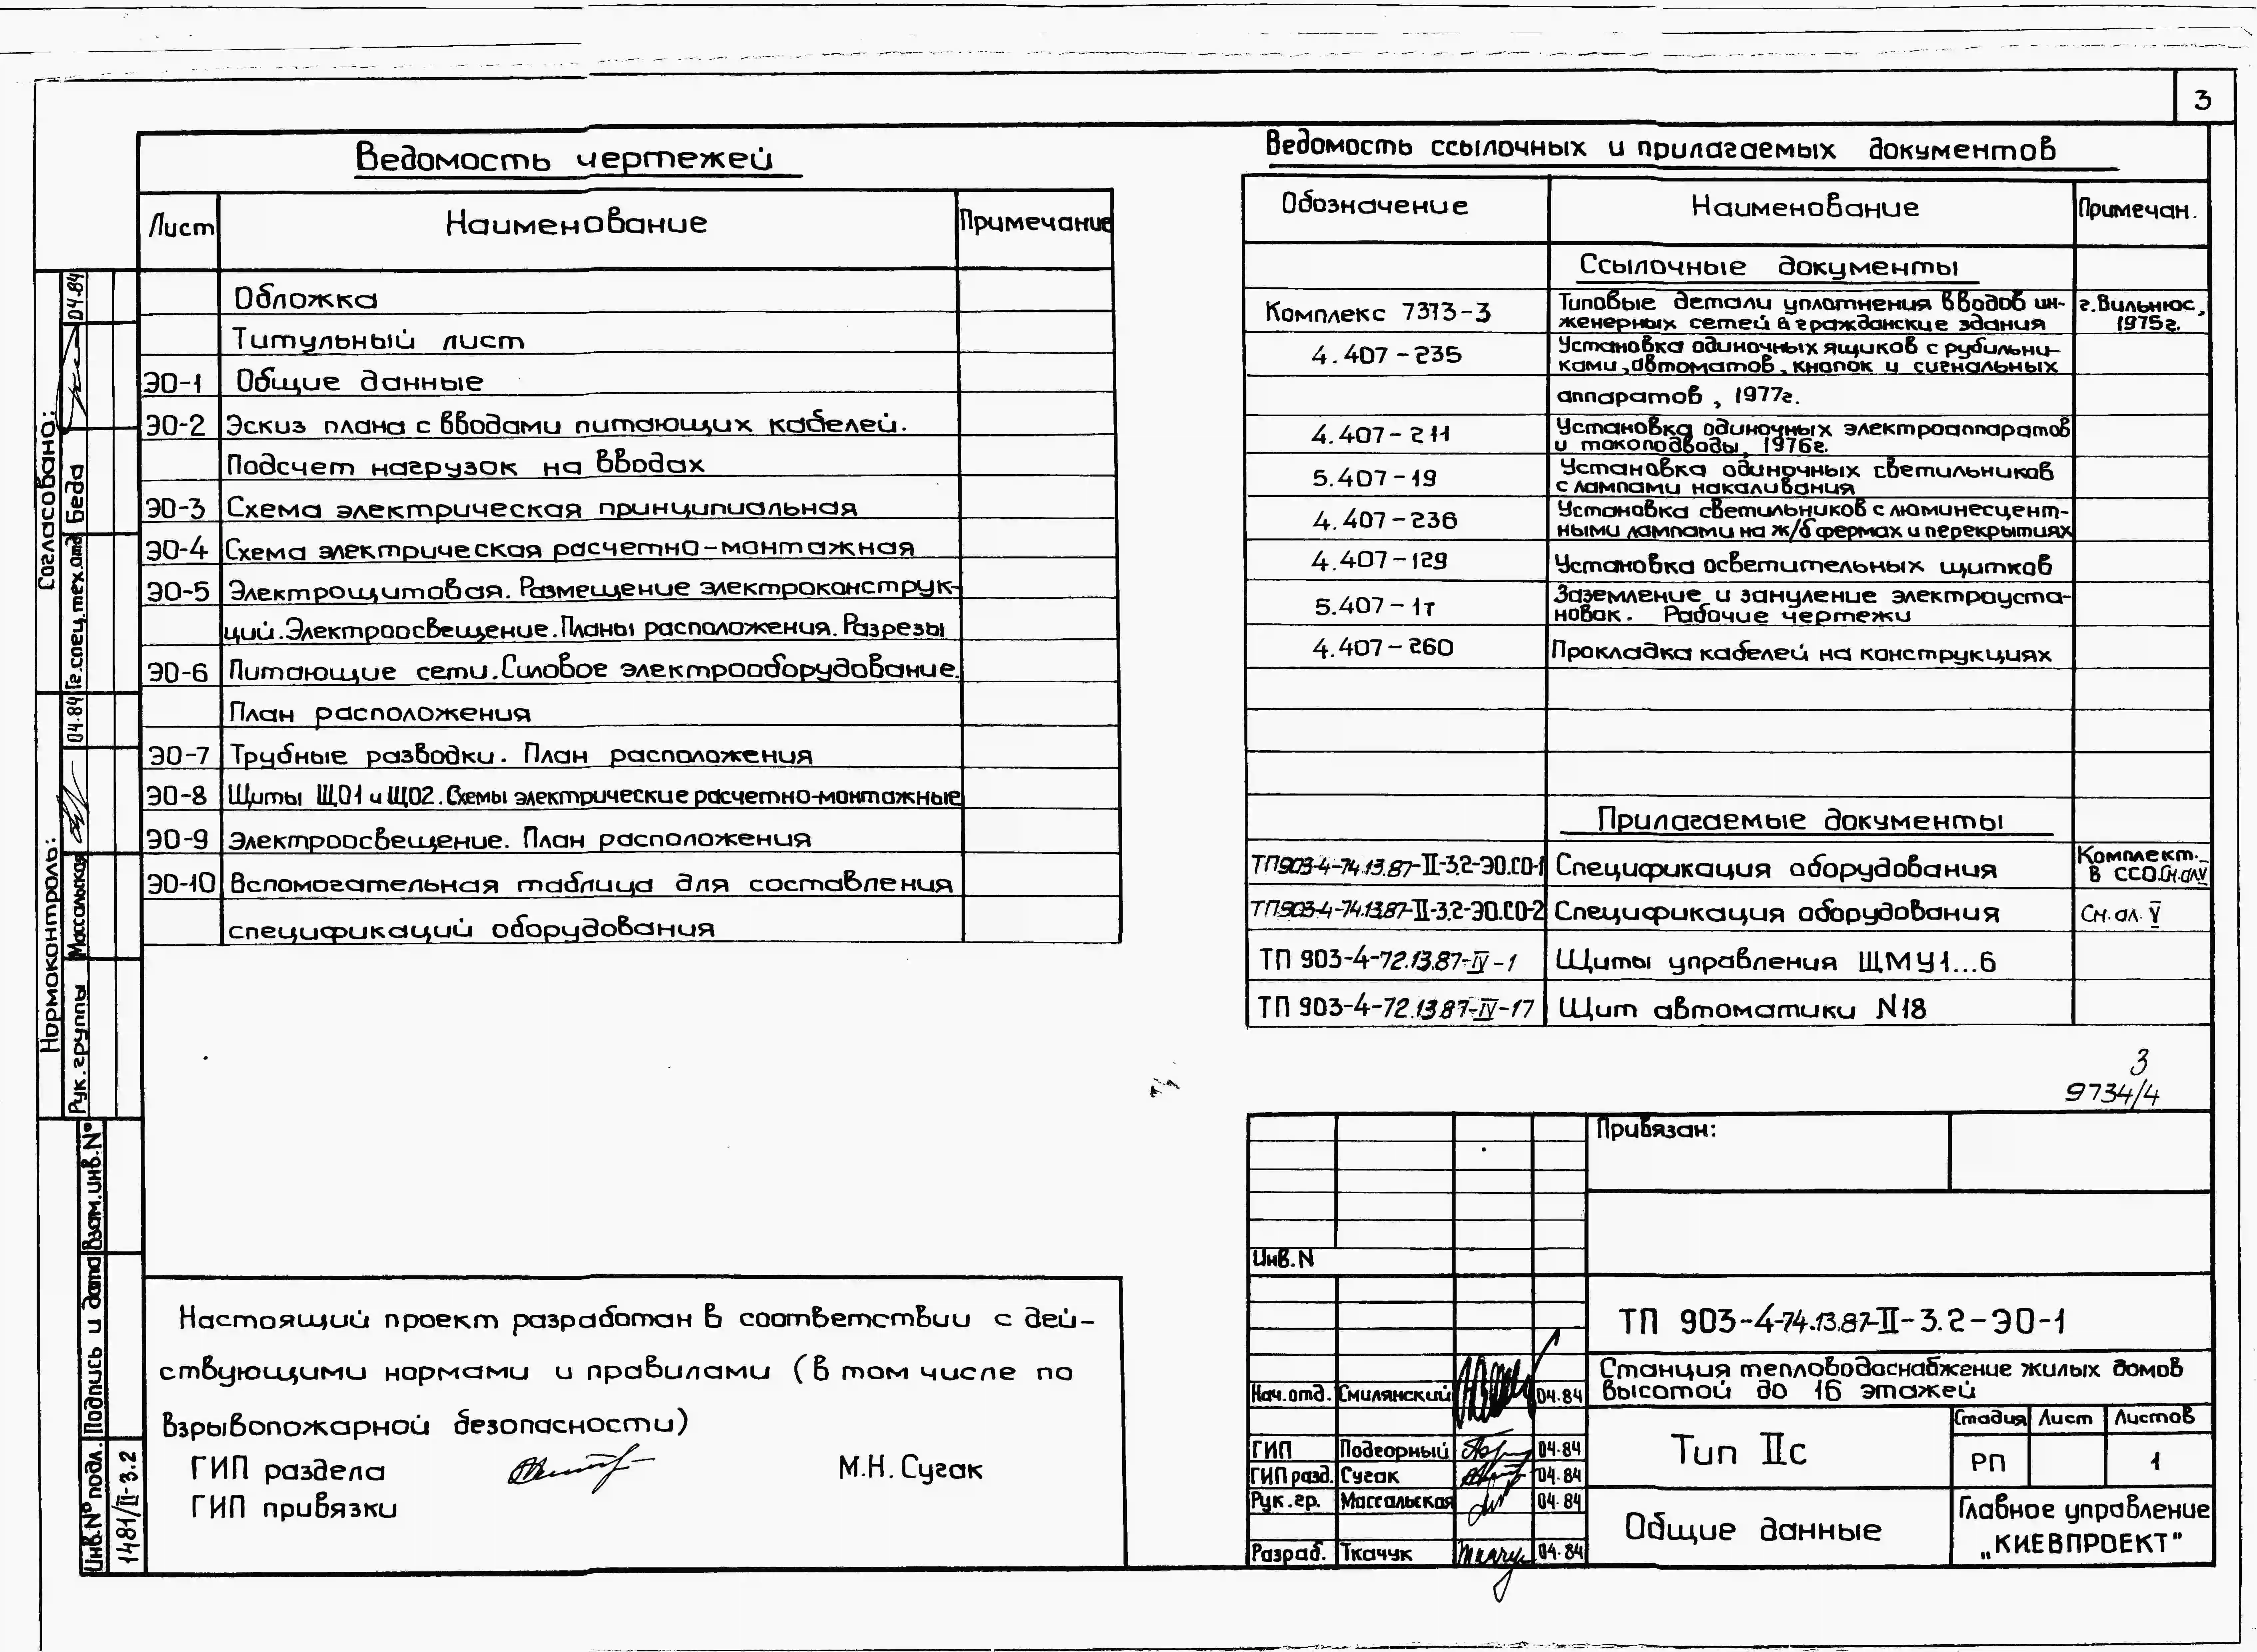 3
Ведомость чертежей
Лист Наименование Примечание
Обложка
Титульный лист
ЭО-1 Общие данные
ЭО-2 Эскиз плана с вводами питающих кабелей.
Подсчет нагрузок на вводах
ЭО-3 Схема электрическая принципиальная
ЭО-4 Схема электрическая расчетно-монтажная
ЭО-5 Электрощитовая. Размещение электроконструк-
ций. Электроосвещение. Планы расположения. Разрезы
ЭО-6 Питающие сети. Силовое электрооборудование.
План расположения
ЭО-7 Трубные разводки. План расположения
ЭО-8 Щиты ЩО1 и ЩО2. Схемы электрические расчетно-монтажные
ЭО-9 Электроосвещение. План расположения
ЭО-10 Вспомогательная таблица для составления
спецификаций оборудования
Ведомость ссылочных и прилагаемых документов
Обозначение Наименование Примечан.
Ссылочные документы
Комплекс 7373-3 Типовые детали уплотнения вводов ин-
женерных сетей в гражданские здания
г. Вильнюс,
1975г.
4.407-235 Установка одиночных ящиков с рубильни-
ками, автоматов, кнопок и сигнальных
аппаратов, 1977г.
4.407-211 Установка одиночных электроаппаратов
и токоподводы, 1976г.
5.407-19 Установка одиночных светильников
с лампами накаливания
4.407-236 Установка светильников с люминесцент-
ными лампами на ж/б фермах и перекрытиях
4.407-129 Установка осветительных щитков
5.407-1т Заземление и зануление электроуста-
новок. Рабочие чертежи
4.407-260 Прокладка кабелей на конструкциях
Прилагаемые документы
ТП903-4-74.13.87-II-3.2-ЭО.СО-1 Спецификация оборудования
Комплект.
в ССО.См.ал.V
ТП903-4-74.13.87-II-3.2-ЭО.СО-2 Спецификация оборудования См. ал. V
ТП 903-4-72.13.87-IV-1 Щиты управления ЩМУ1...6
ТП 903-4-72.13.87-IV-17 Щит автоматики N18
3
9734/4
Согласовано:
Гл. спец. тех. отд Беда 04.84
Нормоконтроль:
Рук. группы Массальская 04.84
Взам. инв. №
Подпись и дата
Инв. № подл.
1481/II-3.2
Настоящий проект разработан в соответствии с дей-
ствующими нормами и правилами (в том числе по
взрывопожарной безопасности)
ГИП раздела М.Н. Сугак
ГИП привязки
Привязан:
Инв. N
ТП 903-4-74.13.87-II-3.2-ЭО-1
Станция тепловодоснабжение жилых домов
высотой до 16 этажей
Нач. отд. Смилянский 04.84
ГИП Подгорный 04.84
ГИП разд. Сугак 04.84
Рук. гр. Массальская 04.84
Разраб. Ткачук 04.84
Тип IIс
Стадия Лист Листов
РП 1
Общие данные
Главное управление
„КИЕВПРОЕКТ"